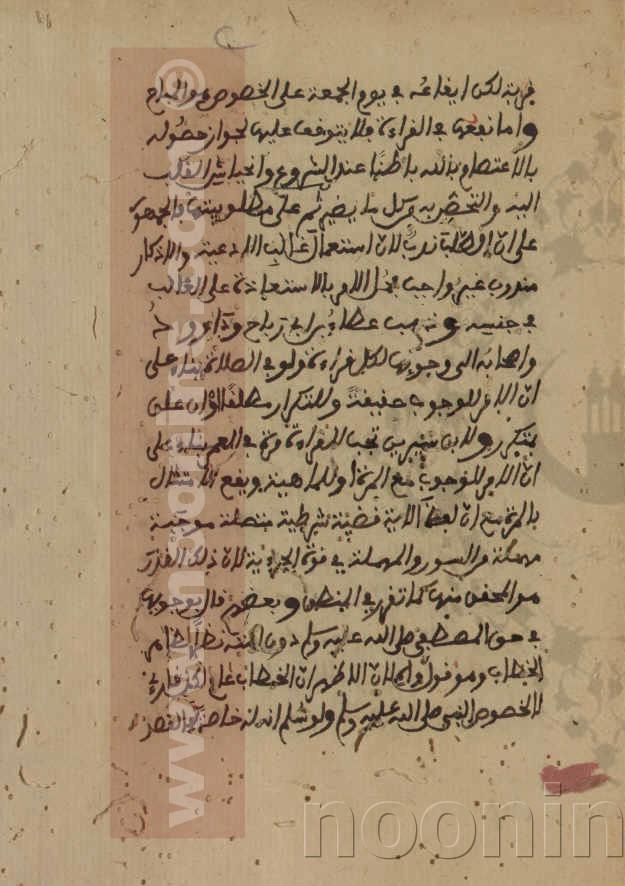 قربة لكن ايقاعه في يوم الجمعة على الخصوص هو المباح
واما نفعها في القراءة فلا يتوقف عليها لجواز حصوله
بالاعتصام بالله باطنا عند الشروع وانحياش القلب
اليه والتحصن به من كل ما يضر ثم على مطلوبيتها فالجمهور
على ان الطلب ندب لان استعمال غالب الادعية والاذكار
مندوب غير واجب فحمل الامر بالاستعاذة على الغالب
في جنسه وذهب عطاء بن ابي رباح وداوود
واصحابه الى وجوبها لكل قراءة ولو في الصلاة بناء على
ان الامر للوجوب حقيقة وللتكرار مطلقا او ان على
بتكرر ولابن سيرين تجب للقراءة مرة في العمر بناء على
ان الامر للوجوب مع المرة او للماهية ويقع الامتثال
بالمرة مع ان لفظ الاية قضية شرطية متصلة موجبة
مهملة من السور والمهملة في قوة الجزئية لان ذلك القدر
هو المحقق منها كما تقرر في المنطق وبعضهم قال بوجوبها
في حق المصطفى صلى الله عليه وسلم دون امته نظرا لظاهر
الخطاب وهو قول واه لان الاظهر ان الخطاب عام لكل قارئ
لا لخصوص النبي صلى الله عليه وسلم ولو سلم انه له خاصة
www.
noonin